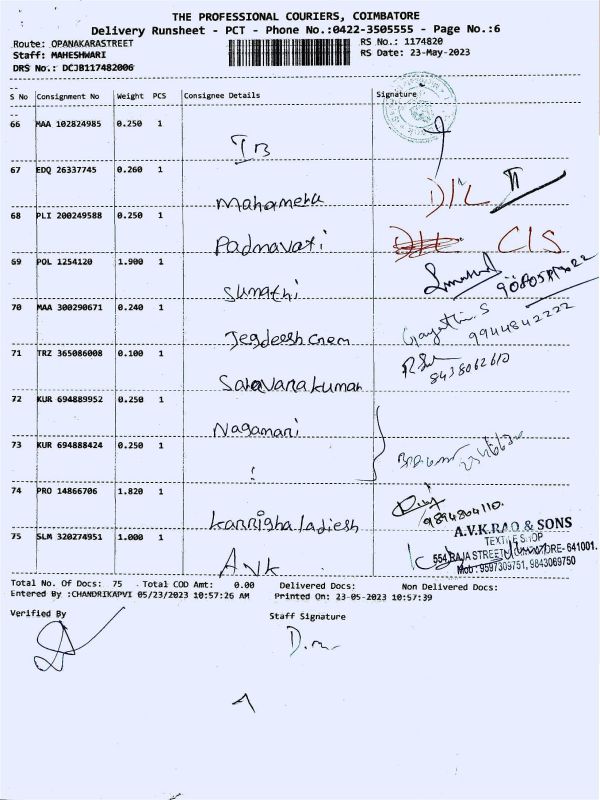 THE PROFESSIONAL COURIERS, COIMBATORE
Delivery Runsheet - PCT - Phone No.:0422-3505555 - Page No.:6
Route: OPANAKARASTREET
RS No.: 1174820
Staff: MAHESHWARI
RS Date: 23-May-2023
DRS No.: DCJB117482006
S No Consignment No Weight PCS Consignee Details Signature
66 MAA 102824985 0.250 1
67 EDQ 26337745 0.260 1
mahameru D/L
68 PLI 200249588 0.250 1
Padmavati CIS
69 POL 1254120 1.900 1
Sumathi
70 MAA 300290671 0.240 1
Gayathri S
9944842222
71 TRZ 365086008 0.100 1
Saravanakumar
8438062612
72 KUR 694889952 0.250 1
Nagamani
73 KUR 694888424 0.250 1
74 PRO 14866706 1.820 1
9894864110.
75 SLM 320274951 1.000 1
AVK
A.V.K.RAO & SONS
TEXTILE SHOP
554, RAJA STREET, COIMBATORE- 641001.
Mob : 9597309751, 9843069750
Total No. Of Docs: 75 Total COD Amt: 0.00 Delivered Docs: Non Delivered Docs:
Entered By :CHANDRIKAPVI 05/23/2023 10:57:26 AM Printed On: 23-05-2023 10:57:39
Verified By Staff Signature